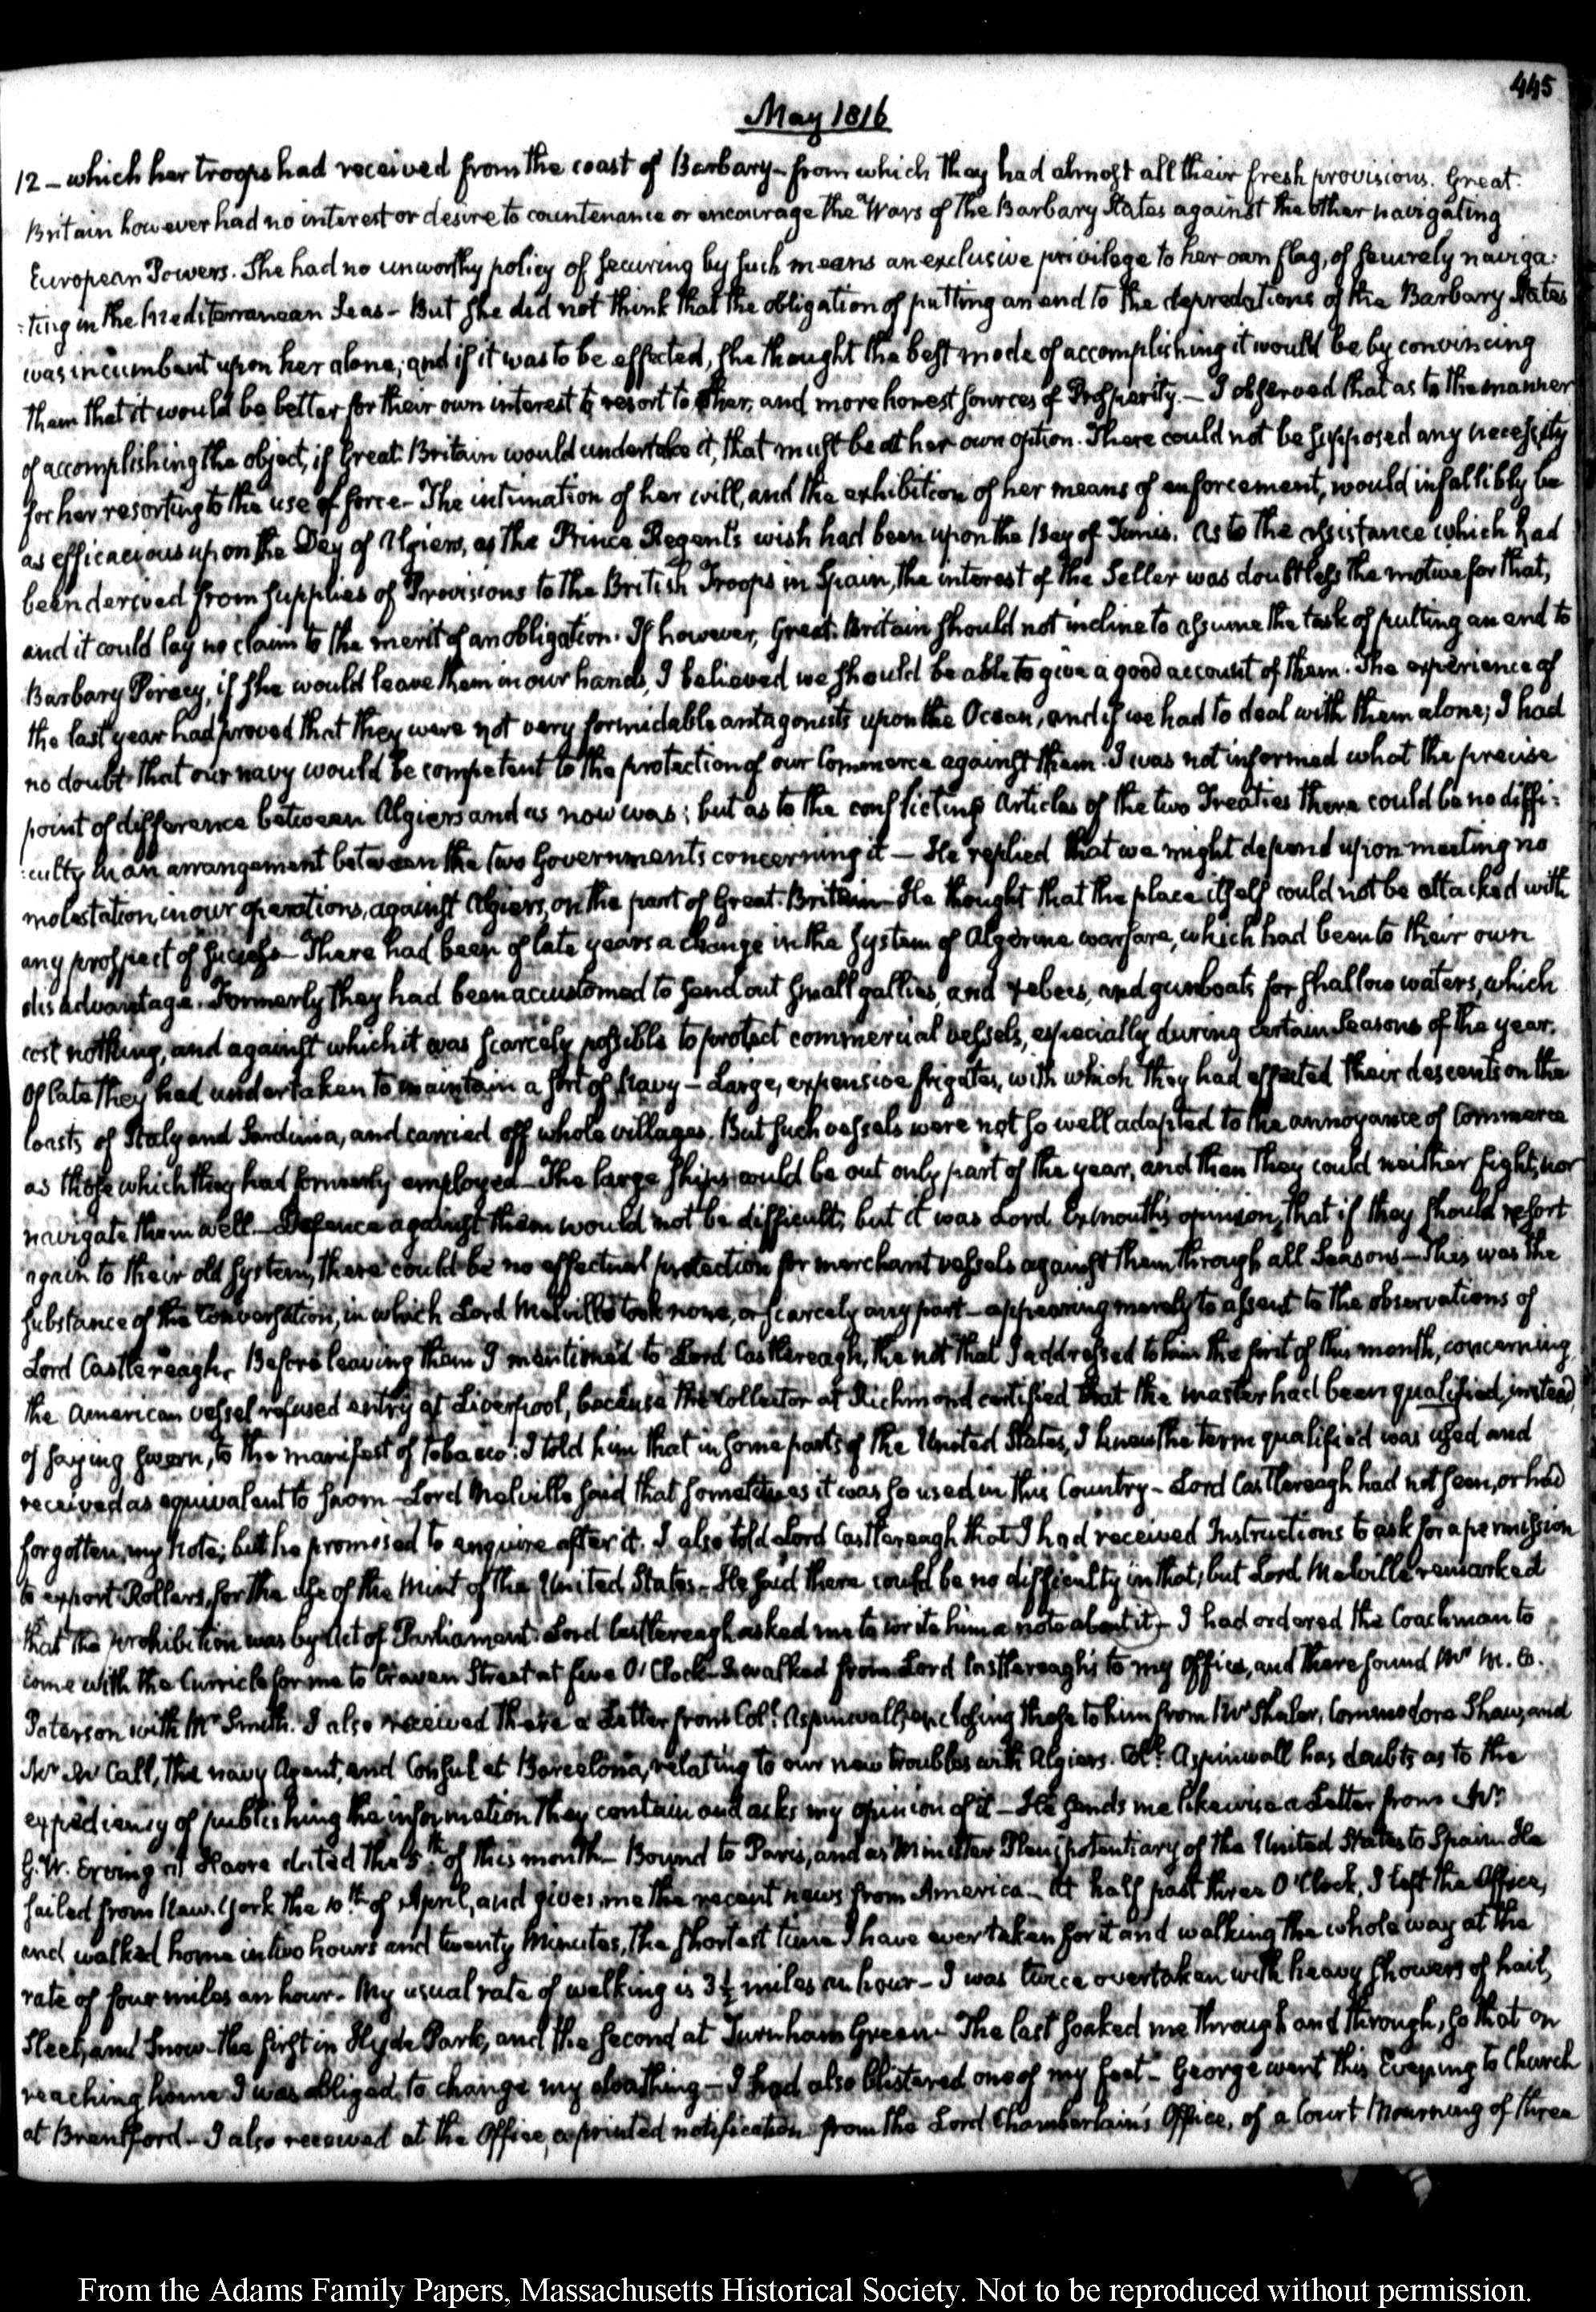 445
May 1816
12 – which her troops had received from the coast of Barbary – from which they had almost all their fresh provisions. Great-
Britain however had no interest or desire to countenance or encourage the Wars of the Barbary States against the other navigating
European Powers. She had no unworthy policy of securing by such means an exclusive privilege to her own flag, of securely naviga:
:ting in the Mediterranean Seas – But she did not think that the obligation of putting an end to the depredations of the Barbary States
was incumbent upon her alone; and if it was to be effected, she thought the best mode of accomplishing it would be by convincing
them that it would be better for their own interest to resort to other, and more honest sources of Prosperity. – I observed that as to the manner
of accomplishing the object, if Great-Britain would undertake it, that must be at her own option. There could not be supposed any necessity
for her resorting to the use of force – The intimation of her will, and the exhibition of her means of enforcement, would infallibly be
as efficacious upon the Dey of Algiers, as the Prince Regent's wish had been upon the Bey of Tunis. As to the assistance which had
been derived from supplies of Provisions to the British Troops in Spain, the interest of the Seller was doubtless the motive for that,
and it could lay no claim to the merit of an obligation. If however, Great-Britain should not incline to assume the task of putting an end to
Barbary Piracy, if she would leave them in our hands, I believed we should be able to give a good account of them. The experience of
the last year had proved that they were not very formidable antagonists upon the Ocean, and if we had to deal with them alone; I had
no doubt that our navy would be competent to the protection of our Commerce against them. I was not informed what the precise
point of difference between Algiers and us now was; but as to the conflicting Articles of the two Treaties there could be no diffi:
:culty in an arrangement between the two Governments concerning it – He replied that we might depend upon meeting no
molestation, in our operations, against Algiers, on the part of Great-Britain – He thought that the place itself could not be attacked with
any prospect of success – There had been of late years a change in the System of Algerine warfare, which had been to their own
disadvantage. Formerly they had been accustomed to send out small gallies, and xebecs, and gunboats for shallow waters, which
cost nothing, and against which it was scarcely possible to protect commercial vessels, especially during certain Seasons of the year.
Of late they had undertaken to maintain a sort of Navy – Large, expensive frigates, with which they had effected their descents on the
Coasts of Italy and Sardinia, and carried off whole villages. But such vessels were not so well adapted to the annoyance of Commerce
as those which they had formerly employed – The large ships could be out only part of the year, and then they could neither fight, nor
navigate them well – Defence against them would not be difficult; but it was Lord Exmouth's opinion, that if they should resort
again to their old system, there could be no effectual protection for merchant vessels against them through all Seasons – This was the
substance of the Conversation, in which Lord Melville took none, or scarcely any part – appearing merely to assent to the observations of
Lord Castlereagh. Before leaving them I mentioned to Lord Castlereagh, the not that I addressed to him the first of this month, concerning
the American vessel refused entry at Liverpool, because the Collector at Richmond certified that the master had been qualified, instead
of saying sworn, to the manifest of tobacco: I told him that in some parts of the United States, I knew the term qualified was used and
received as equivalent to sworn – Lord Melville said that sometimes it was so used in this Country – Lord Castlereagh had not seen, or had
forgotten, my Note; but he promised to enquire after it. I also told Lord Castlereagh that I had received Instructions to ask for a permission
to export Rollers, for the use of the Mint of the United States – He said there could be no difficulty in that; but Lord Melville remarked
that the prohibition was by Act of Parliament. Lord Castlereagh asked me to write him a note about it – I had ordered the Coachman to
come with the Curricle for me to Craven Street at five O'Clock – I walked from Lord Castlereagh's to my Office, and there found Mr
Paterson with Mr Smith. I also received there a Letter from Coll. Aspinwall, enclosing those to him from Mr Shaler, Commodore Shaw, and
Mr McCall, the navy Agent, and Consul at Barcelona, relating to our new troubles with Algiers. Coll. Aspinwall has doubts as to the
expediency of publishing the information they contain and asks my opinion of it – He sends me likewise a Letter from Mr
G. W. Erving at Havre dated the 5th of this month – Bound to Paris, and as Minister Plenipotentiary of the United States to Spain. He
sailed from New-York the 10th of April, and gives me the recent news from America – At half past three O'Clock, I left the Office,
and walked home in two hours and twenty Minutes, the shortest time I have ever taken for it and walking the whole way at the
rate of four miles an hour – My usual rate of walking is 3½ miles an hour – I was twice overtaken with heavy showers of hail,
Sleet, and Snow – the first in Hyde Park, and the second at Turnham Green – The last soaked me through and through, so that on
reaching home I was obliged to change my cloathing – I had also blistered one of my feet – George went this Evening to Church
at Brentford – I also received at the Office, a printed notification from the Lord Chamberlain's Office, of a Court Mourning of three
From the Adams Family Papers, Massachusetts Historical Society. Not to be reproduced without permission.